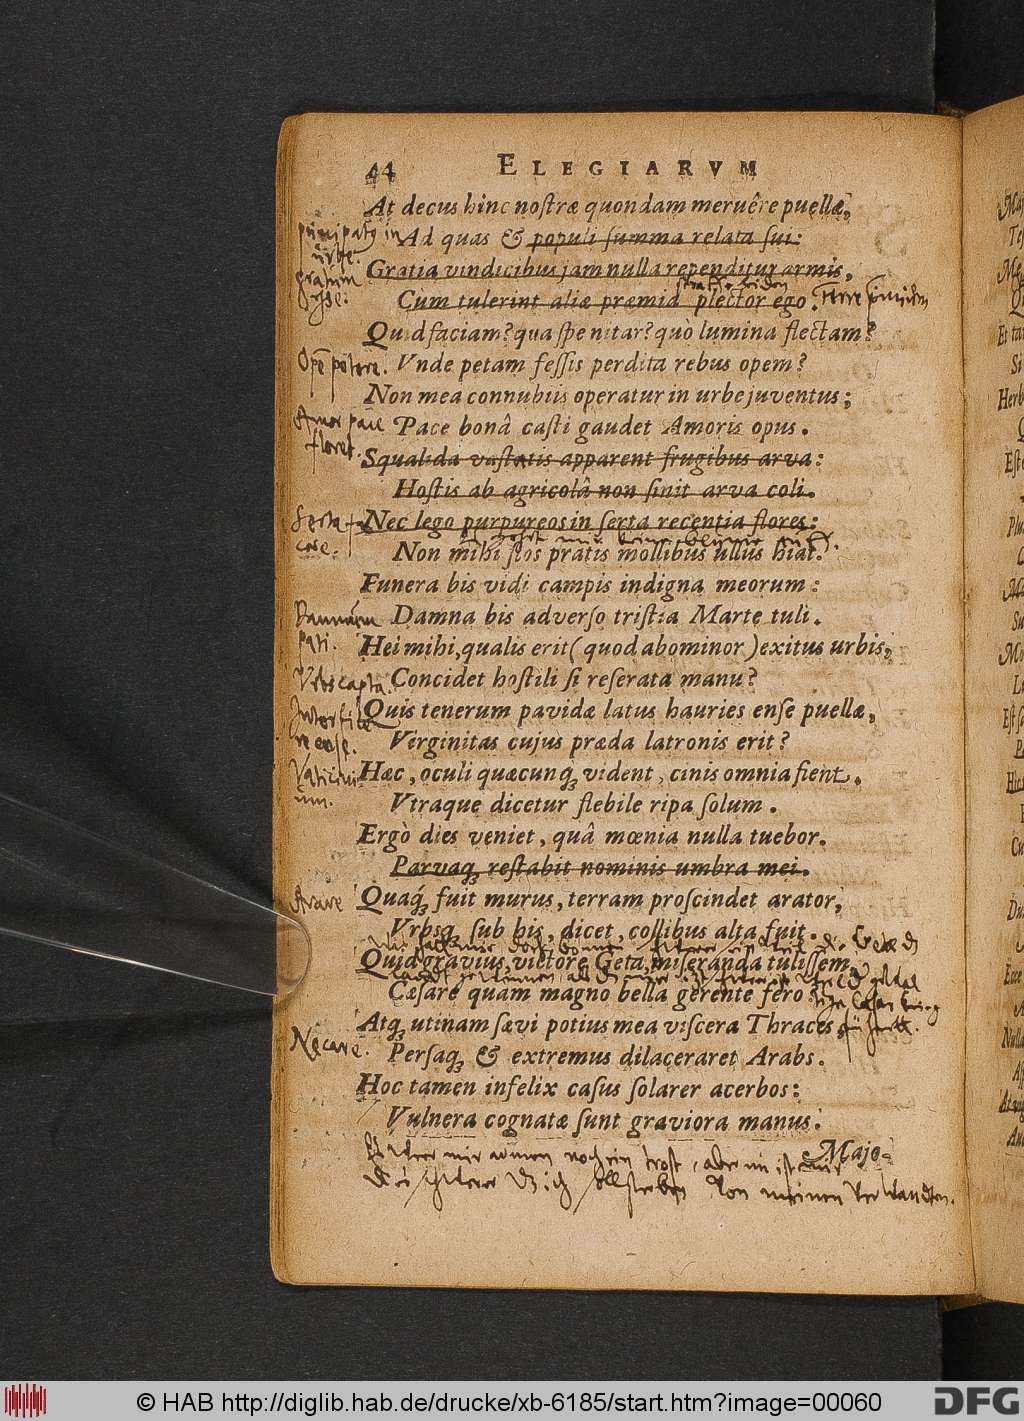 44 ELEGIARVM
At decus hinc nostræ quondam meruêre puellæ,
Ad quas & populi summa relata sui:
principatus in
urbe.
Gratia vindicibus jam nulla rependitur armis,
gratum
esse.
Cum tulerint aliæ præmia plector ego.
Quid faciam? qua spe nitar? quò lumina flectam?
Vnde petam fessis perdita rebus opem?
Opē petere.
Non mea connubiis operatur in urbe juventus;
Pace bonâ casti gaudet Amoris opus.
Amor pace
floret.
Squalida vastatis apparent frugibus arva:
Hostis ab agricolâ non sinit arva coli.
Nec lego purpureos in serta recentia flores:
Serta
Non mihi flos pratis mollibus ullus hiat.
Funera bis vidi campis indigna meorum:
Damna bis adverso tristia Marte tuli.
Damnum
pati.
Hei mihi, qualis erit (quod abominor) exitus urbis,
Concidet hostili si reserata manu?
Vrbs capta.
Quis tenerum pavidæ latus hauries ense puellæ,
Interfice
re ense.
Verginitas cujus præda latronis erit?
Hæc, oculi quæcunq; vident, cinis omnia fient.
Vaticini
um.
Vtraque dicetur flebile ripa solum.
Ergò dies veniet, quâ mœnia nulla tuebor.
Parvaq; restabit nominis umbra mei.
Quaq; fuit murus, terram proscindet arator,
Arare
Vrbsq; sub his, dicet, collibus alta fuit.
Quid gravius, victore Geta, miseranda tulissem
Cæsare quam magno bella gerente fero?
Atq; utinam sævi potius mea viscera Thraces,
Necare.
Persaq; & extremus dilaceraret Arabs.
Hoc tamen infelix casus solarer acerbos:
Vulnera cognatæ sunt graviora manus.
Majo-
mir armen noch ein trost, aber nu ist mir
von meinen verwandten.
© HAB http://diglib.hab.de/drucke/xb-6185/start.htm?image=00060
DFG